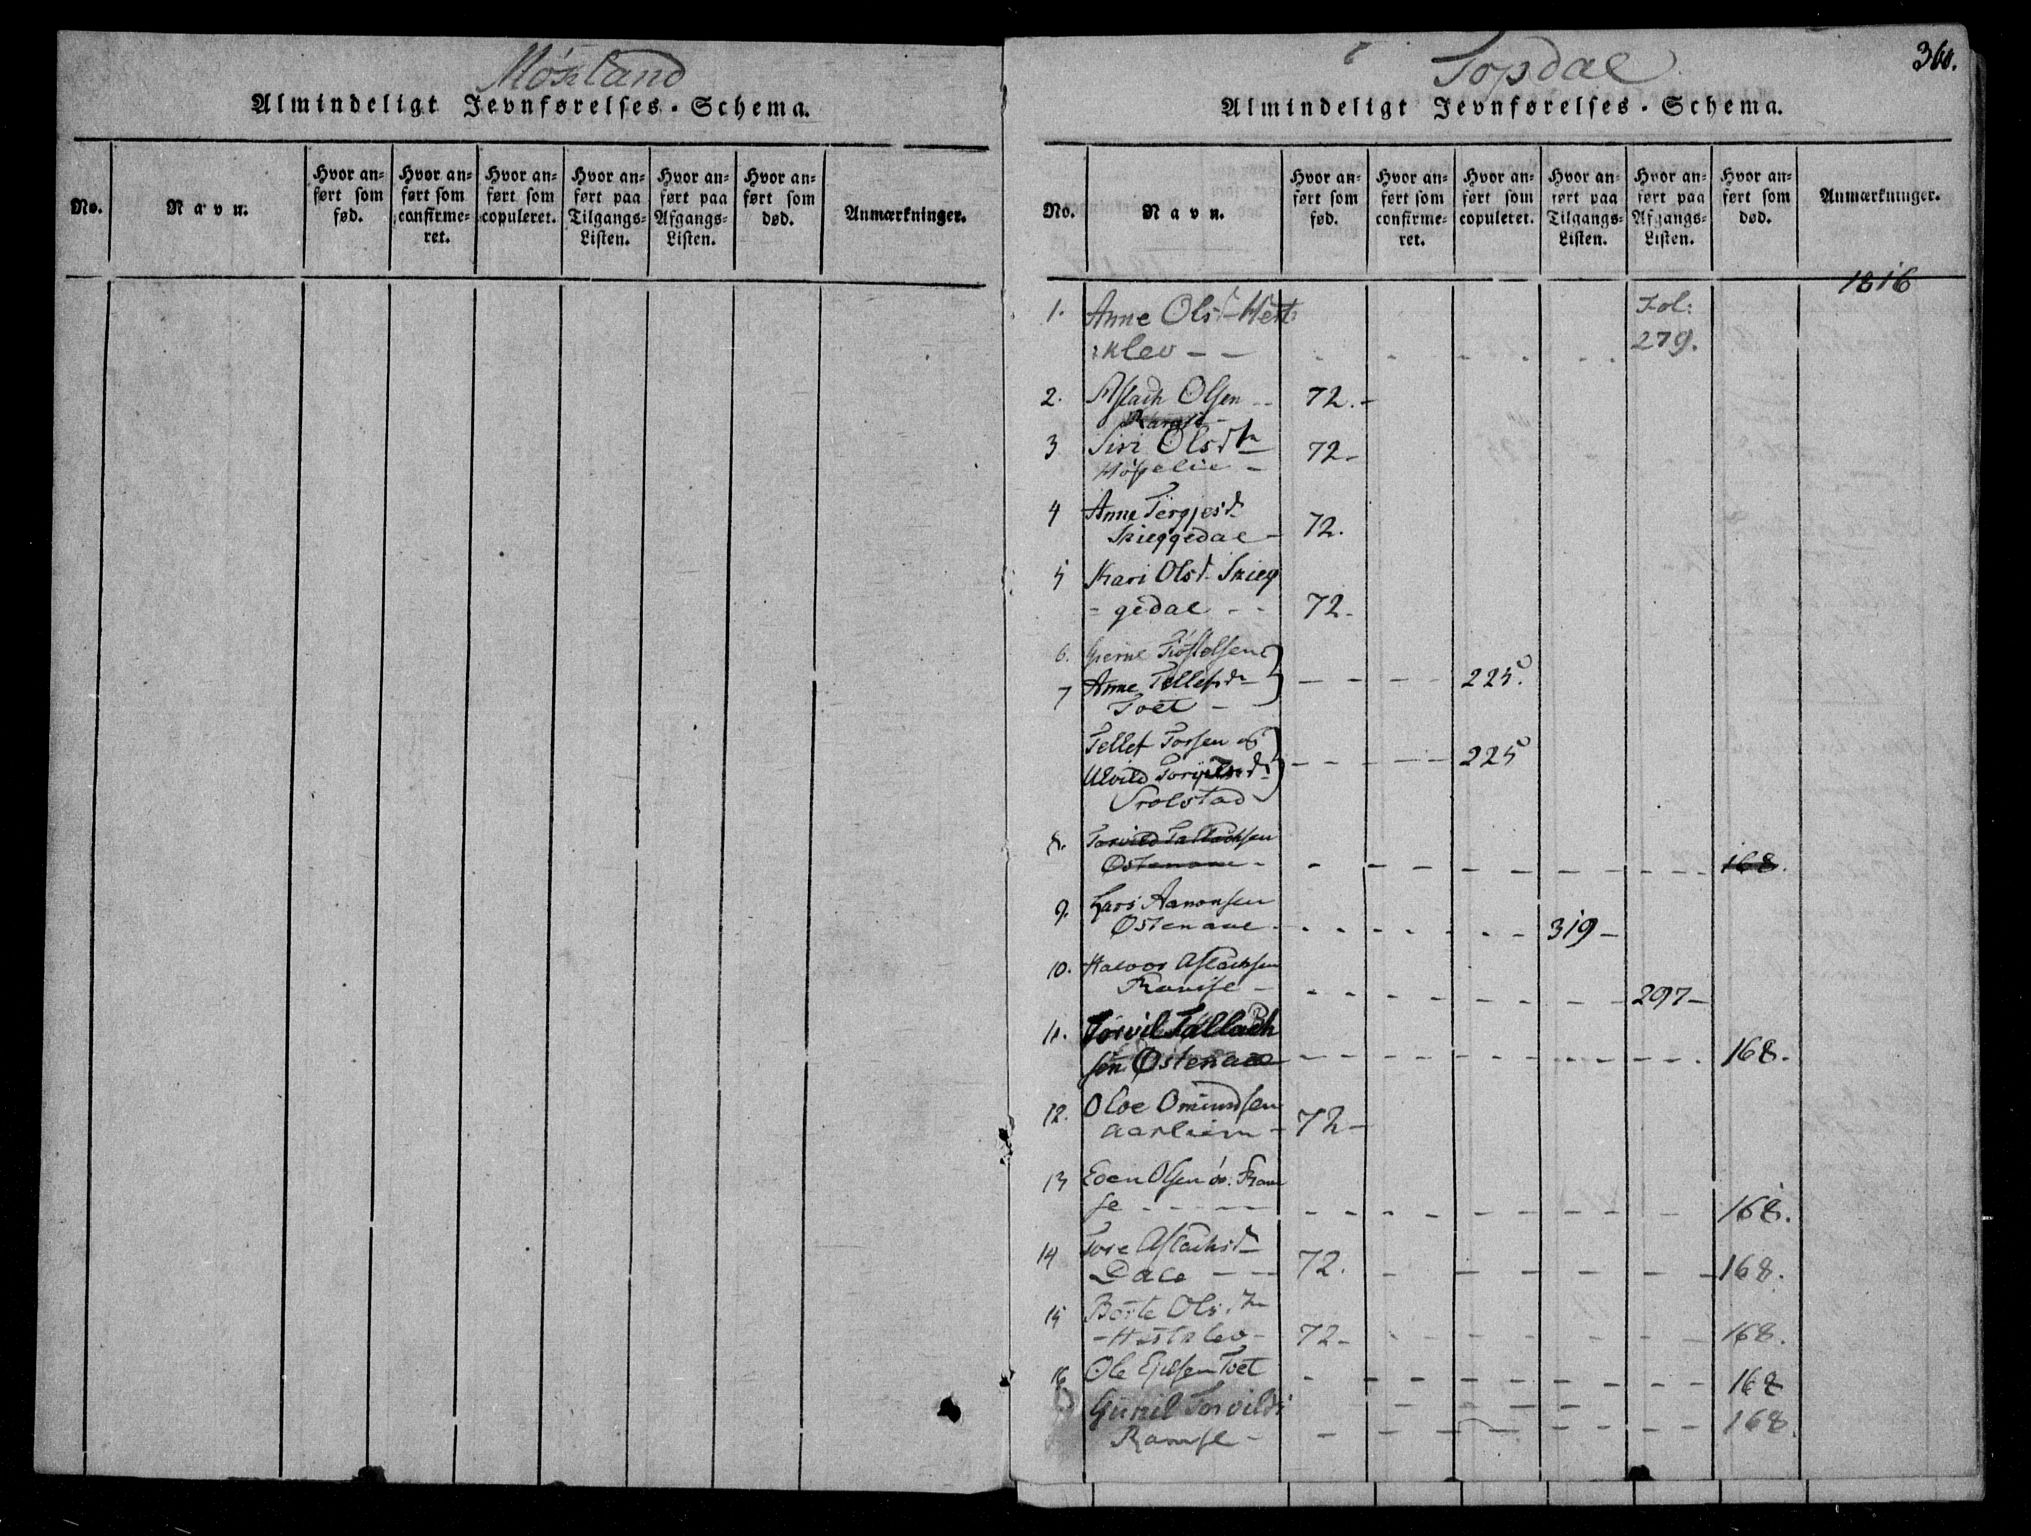 Mösland
Almindeligt Jevnførelses-Schema.
No.
Navn.
Hvor an-
ført som
fød.
Hvor an-
ført som
confirme-
ret.
Hvor an-
ført som
copuleret.
Hvor an-
ført paa
Tilgangs-
Listen.
Hvor an-
ført paa
Afgangs-
Listen.
Hvor an-
ført som
død.
Anmærkninger.
Topdal
360.
Almindeligt Jevnførelses-Schema.
No.
Navn.
Hvor an-
ført som
fød.
Hvor an-
ført som
confirme-
ret.
Hvor an-
ført som
copuleret.
Hvor an-
ført paa
Tilgangs-
Listen.
Hvor an-
ført paa
Afgangs-
Listen.
Hvor an-
ført som
død.
Anmærkninger.
1816
1. Anne Olsd Hest Fol:
klev - - 279.
2. Aslach Olsen - 72.-
3 Siri Olsdtr 72-
4 Anne Tergjesdr
Skieggedal - 72.
5 Kari Olsd. Skieg
- gedal - - 72-
6.
7 Anne Tellefsdr 225.
Toet -
Tellef Torsen og 225
Ulvild
Srolstad
8. Torvild Tallachsen
Østenaae - 168.
9. Lars Aanonsen
Østenaae - 319-
10. Halvor Aslachsen
Ramse - 297-
11. Torvil Tallach
sen Østenaae 168.
12. Oloe Omundsen
Aarliim - 72-
13 Even Olsen øv. Ram
se - - - - 168.
14 Tore Aslachsd
Dale - - 72. 168.
15 Berte Olsdr
- Hestklev - 72- 168.
16 Ole Ejelsen Toet 168
Gunil Torvilds
Ramse - 168.